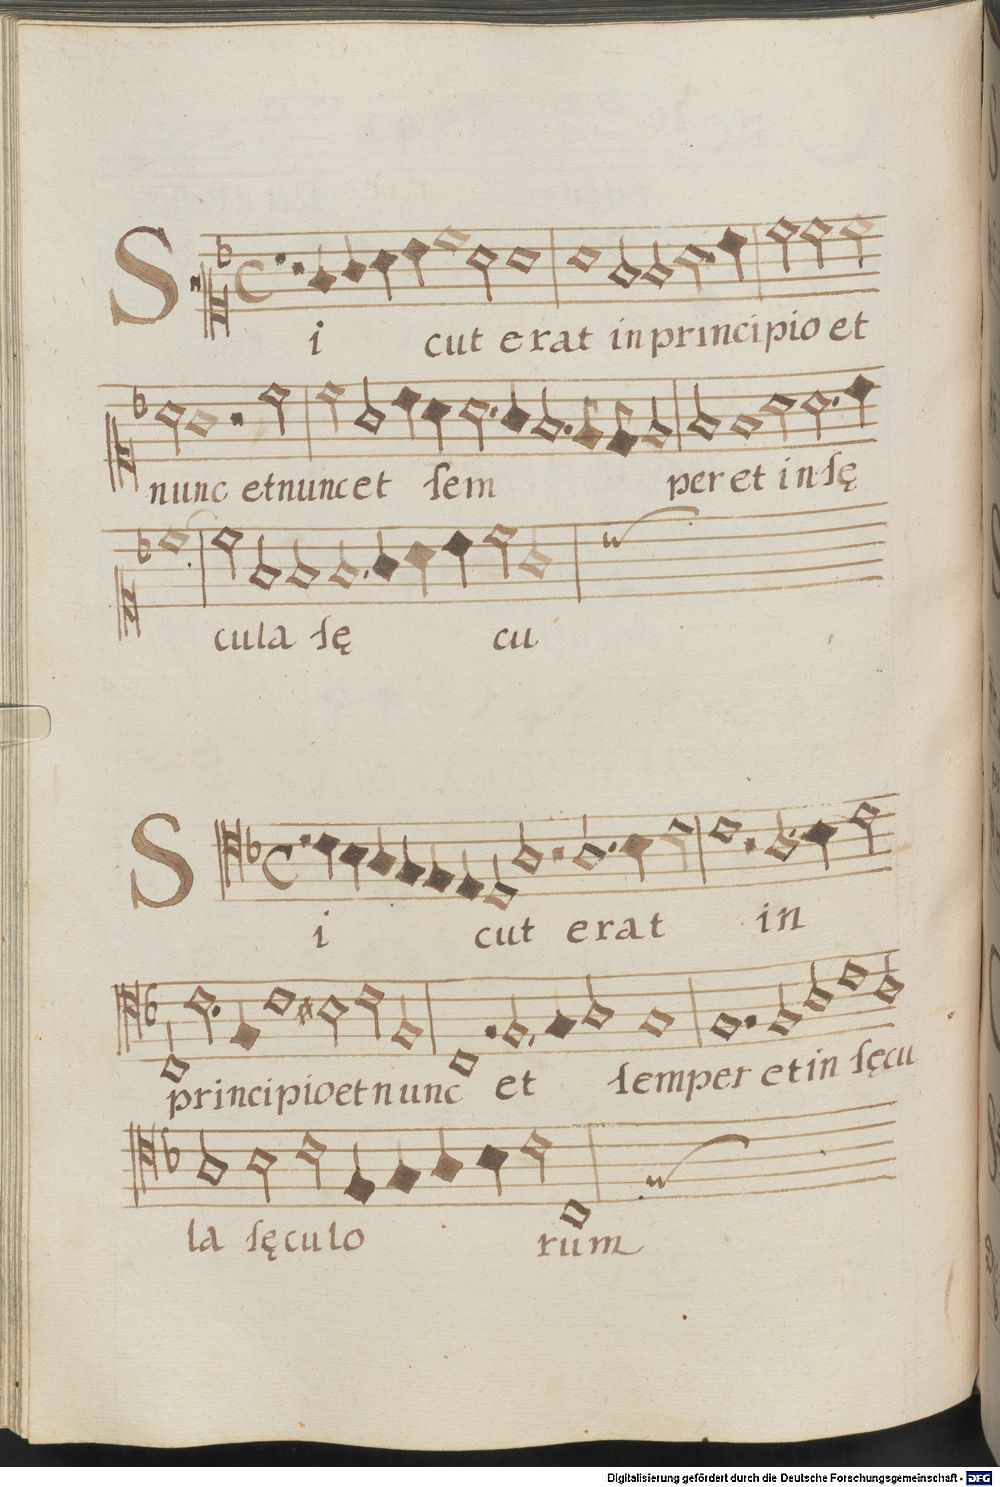 S
i cut erat in principio et
nunc et nunc et sem per et in sę
cula sę cu
S
i cut erat in
principio et nunc et semper et in sęcu
la sęculo rum
Digitalisierung gefördert durch die Deutsche Forschungsgemeinschaft - DFG